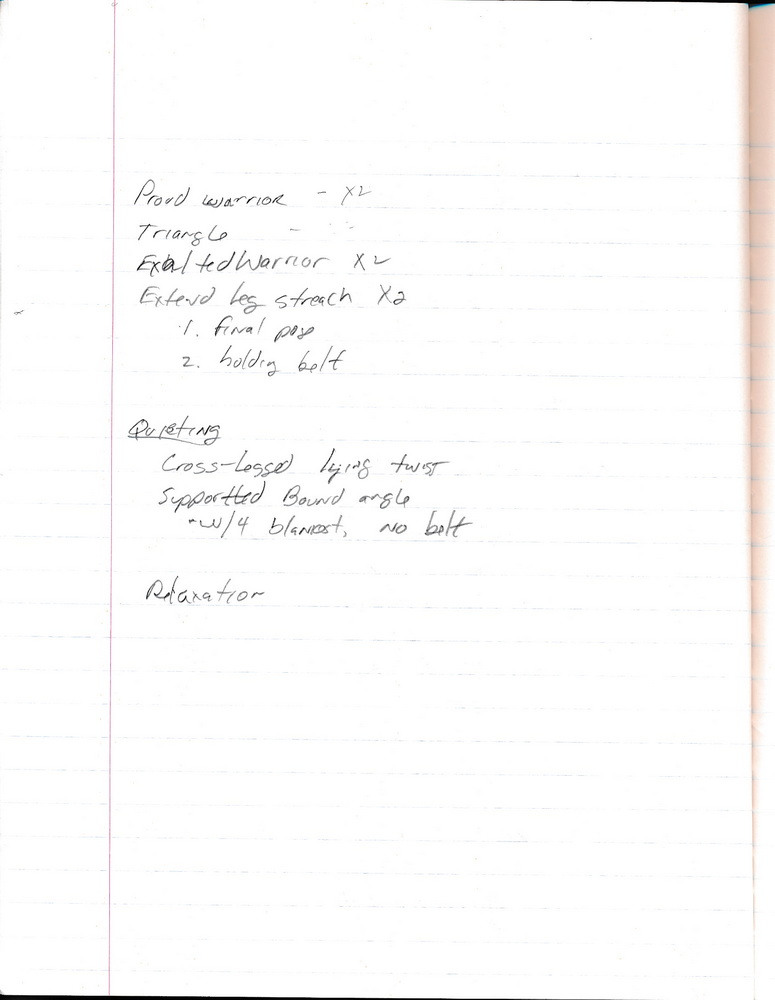 Proud warrior - X2
Triangle -
Exalted Warrior X2
Extend leg streach X2
1. final pose
2. holding belt
Quieting
Cross-legged lying twist
Supportted Bound angle
- w/4 blankest, no belt
Relaxation